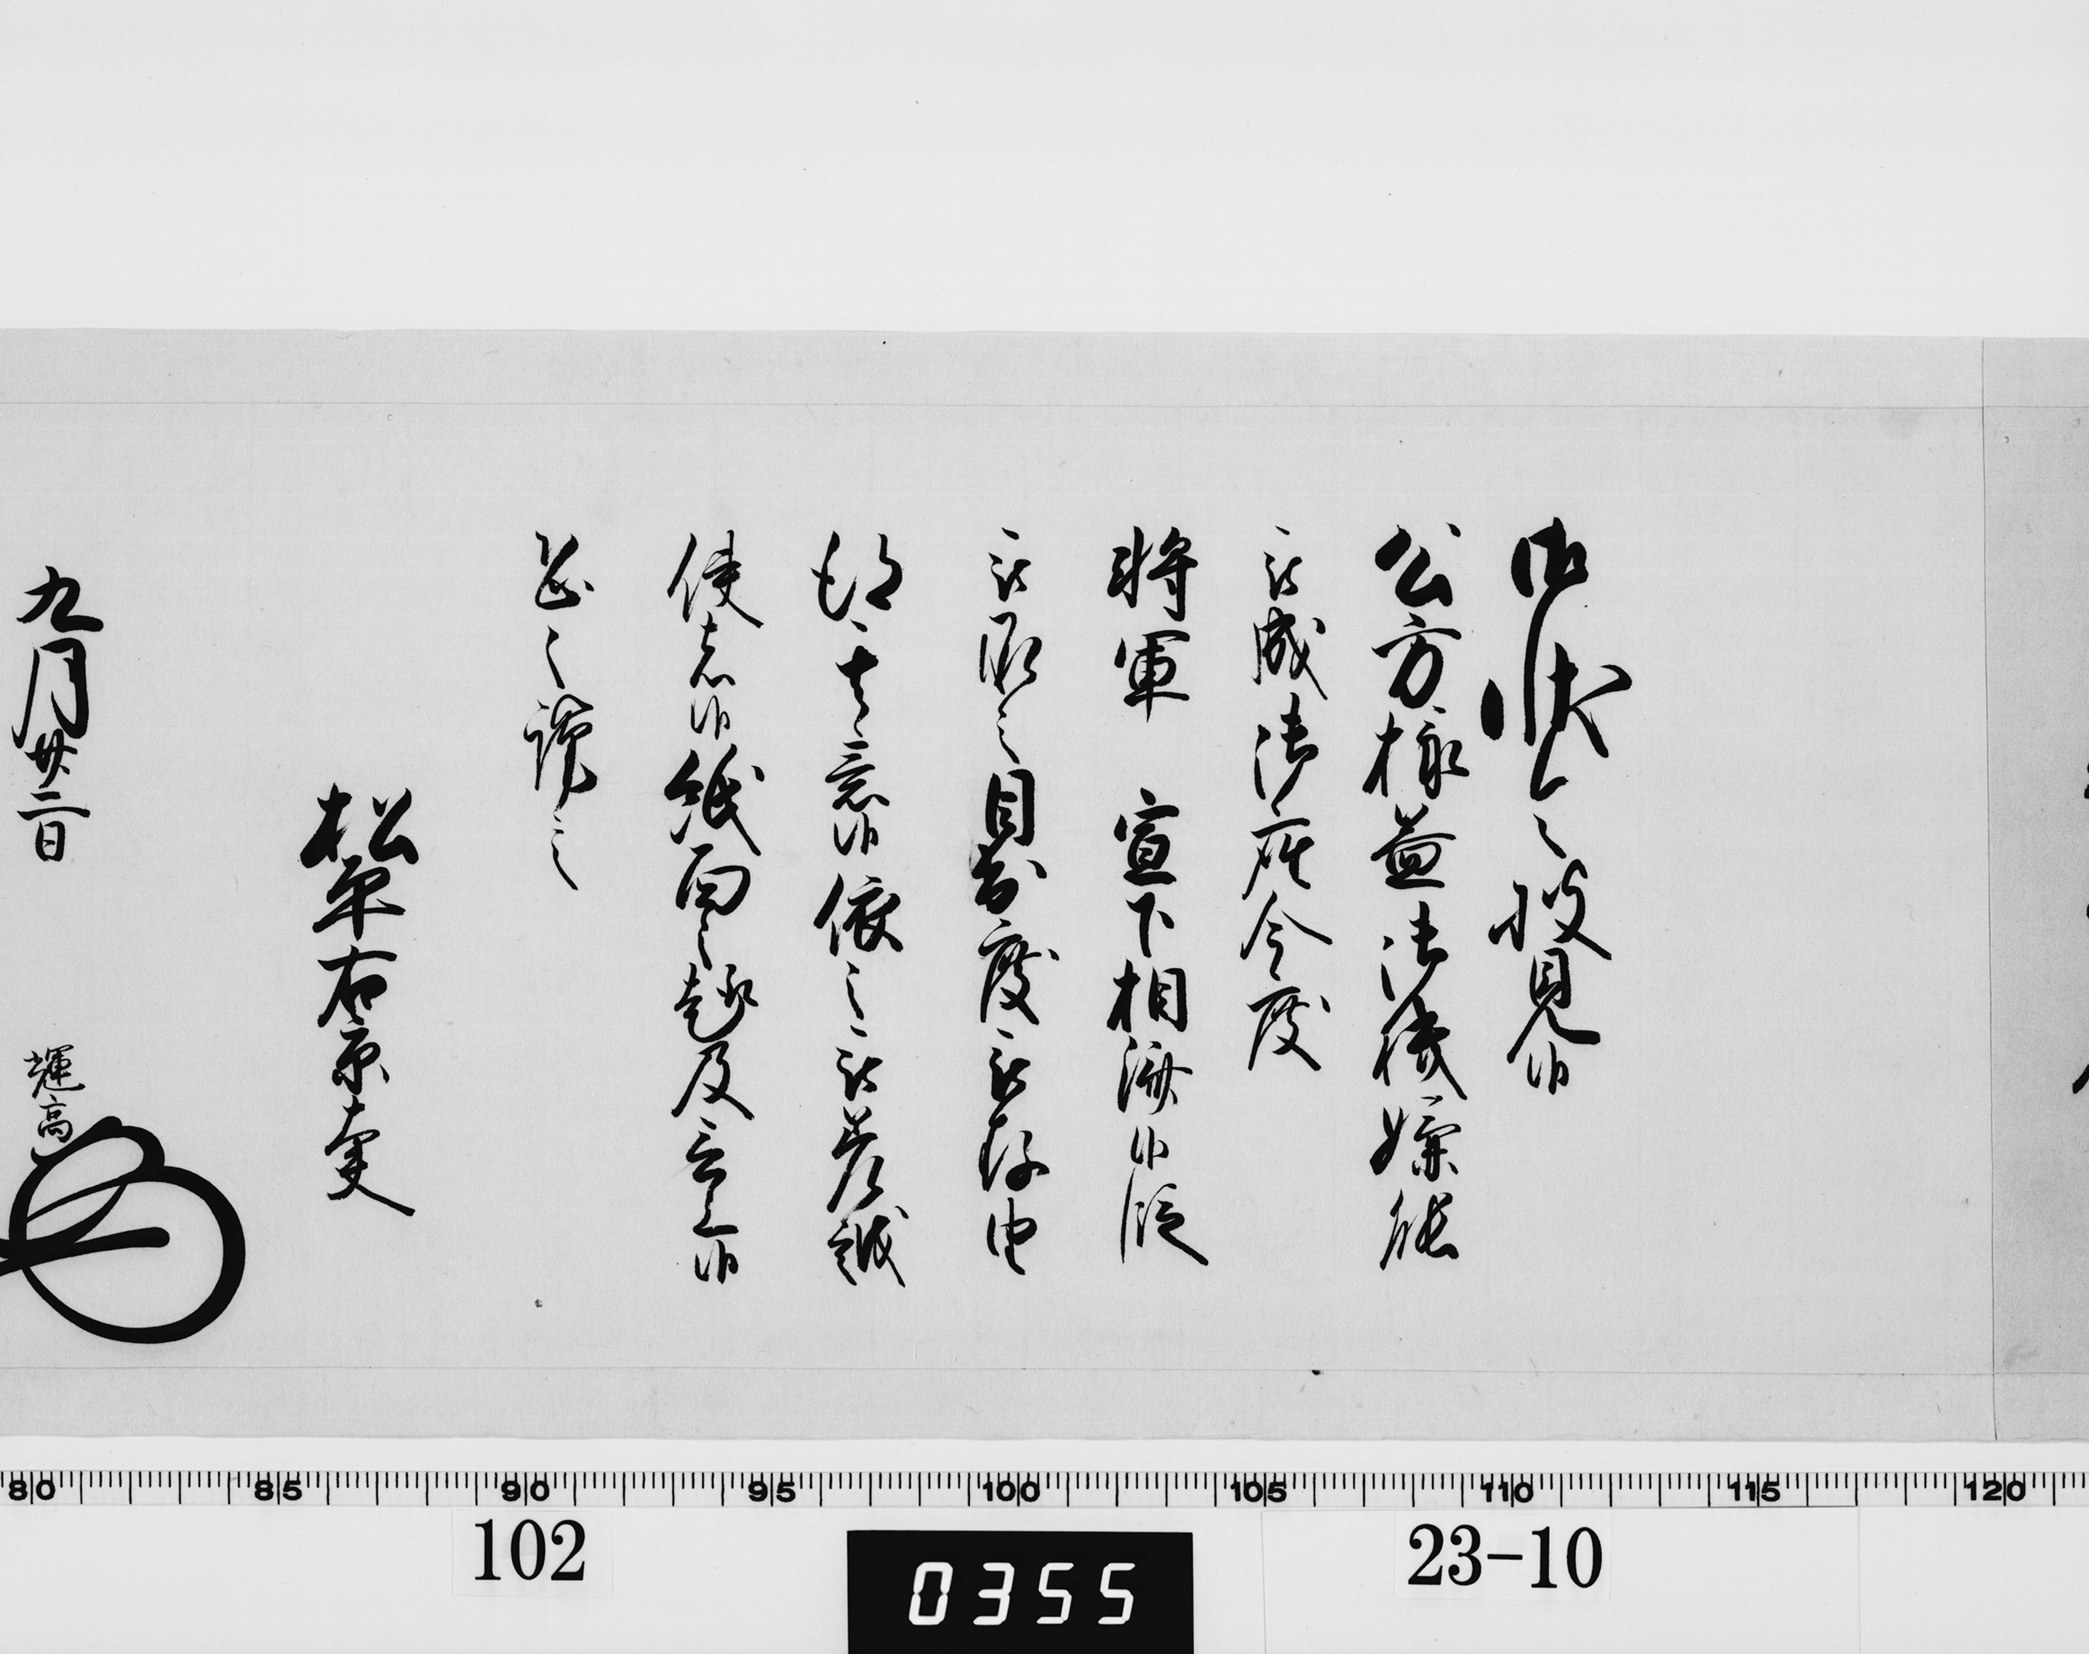 御状令披見候
公方様益御機嫌能
被成御座今度
将軍 宣下相済候段
被承之目出度被存由
得其意候依之被差越
使者候紙面之趣及言上候
恐々謹言
松平右京大夫
九月廿二日
輝高
80 85 90 95 100 105 110 115 120
102
0355
23-10